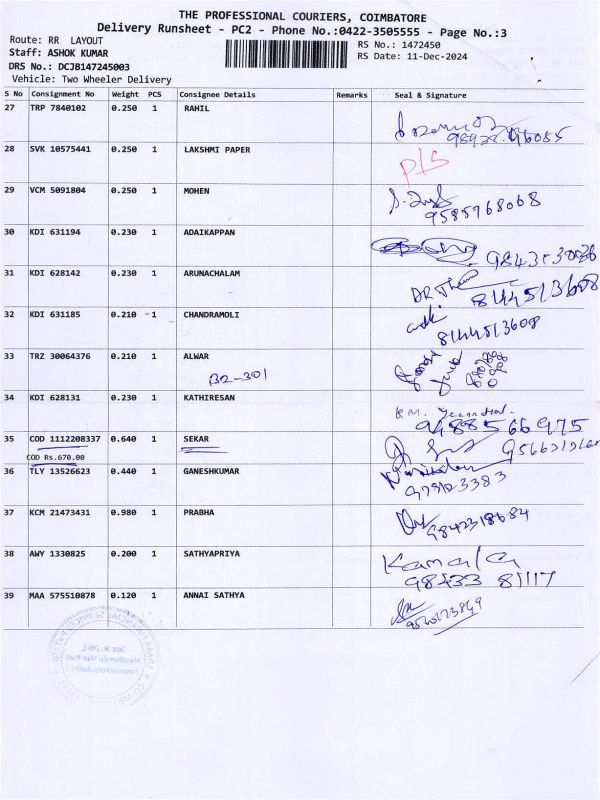 THE PROFESSIONAL COURIERS, COIMBATORE
Delivery Runsheet - PC2 - Phone No.:0422-3505555 - Page No.:3
Route: RR LAYOUT
RS No.: 1472450
Staff: ASHOK KUMAR
RS Date: 11-Dec-2024
DRS No.: DCJB147245003
Vehicle: Two Wheeler Delivery
S No Consignment No Weight PCS Consignee Details Remarks Seal & Signature
27 TRP 7840102 0.250 1 RAHIL
28 SVK 10575441 0.250 1 LAKSHMI PAPER P/S
29 VCM 5091804 0.250 1 MOHEN
9585768068
30 KDI 631194 0.230 1 ADAIKAPPAN
31 KDI 628142 0.230 1 ARUNACHALAM
8144513608
32 KDI 631185 0.210 1 CHANDRAMOLI
8144513608
33 TRZ 30064376 0.210 1 ALWAR
B2-301
34 KDI 628131 0.230 1 KATHIRESAN
9488566975
35 COD 1112208337 0.640 1 SEKAR
COD Rs.670.00
36 TLY 13526623 0.440 1 GANESHKUMAR
37 KCM 21473431 0.980 1 PRABHA
9842318684
38 AWY 1330825 0.200 1 SATHYAPRIYA
Kamala
98433 81117
39 MAA 575510878 0.120 1 ANNAI SATHYA